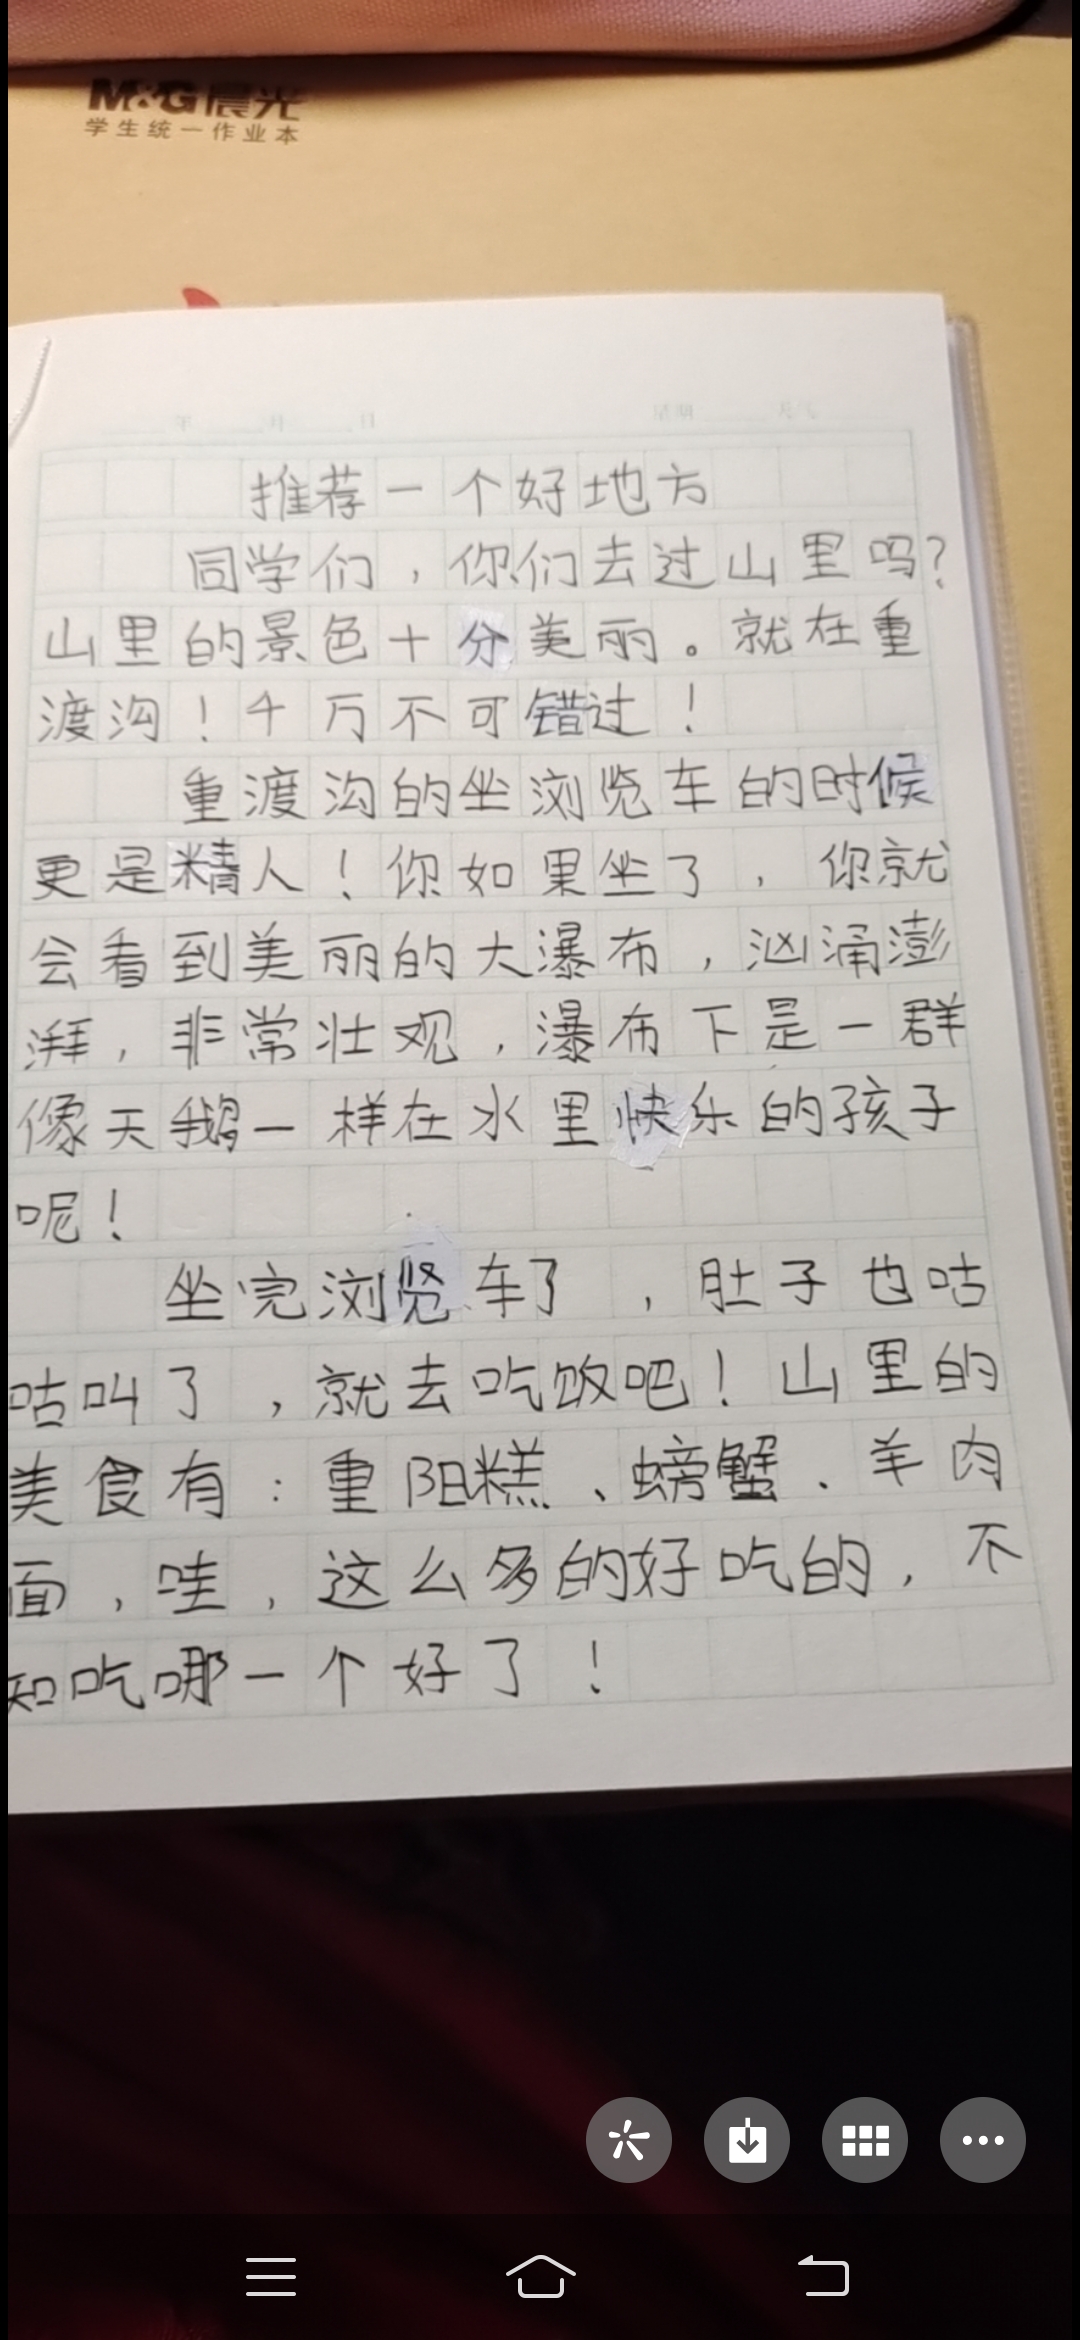 M&G晨光
学生统一作业本
推荐一个好地方
同学们，你们去过山里吗？
山里的景色十分美丽。就在重
渡沟！千万不可错过！
重渡沟的坐浏览车的时候
更是精人！你如果坐了，你就
会看到美丽的大瀑布，汹涌澎
湃，非常壮观，瀑布下是一群
像天鹅一样在水里快乐的孩子
呢！
坐完浏览车了，肚子也咕
咕叫了，就去吃饭吧！山里的
美食有：重阳糕、螃蟹、羊肉
面，哇，这么多的好吃的，不
知吃哪一个好了！